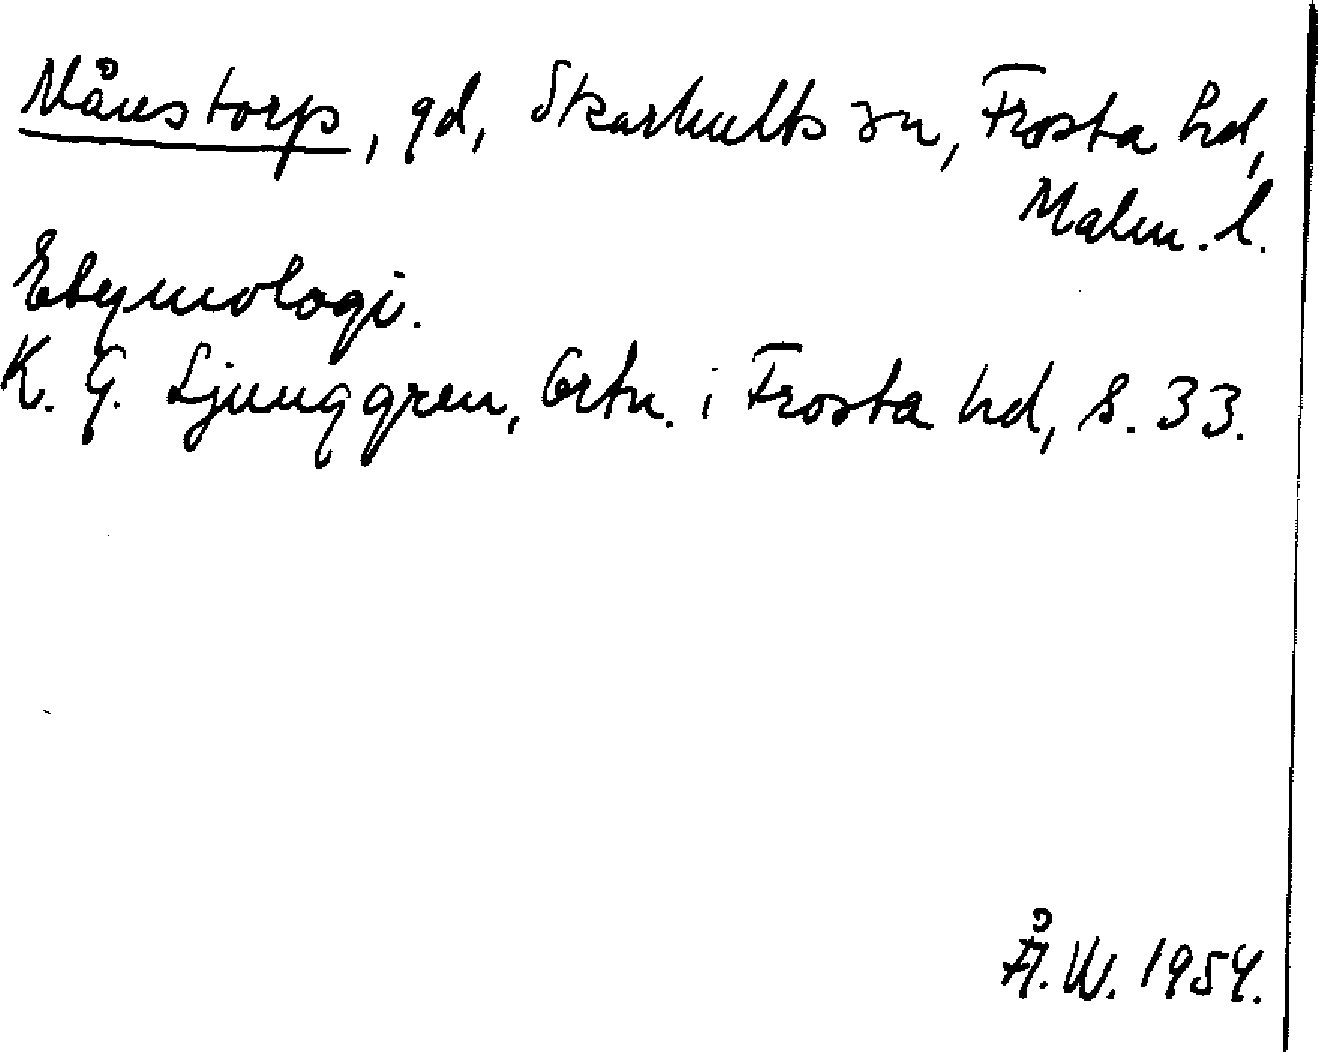 Månstorp, gd, Skarhults sn, Frosta hd,
Malm. l.
Etymologi.
K. G. Ljunggren, Ortn. i Frosta hd, s. 33.
Å. W. 1954.